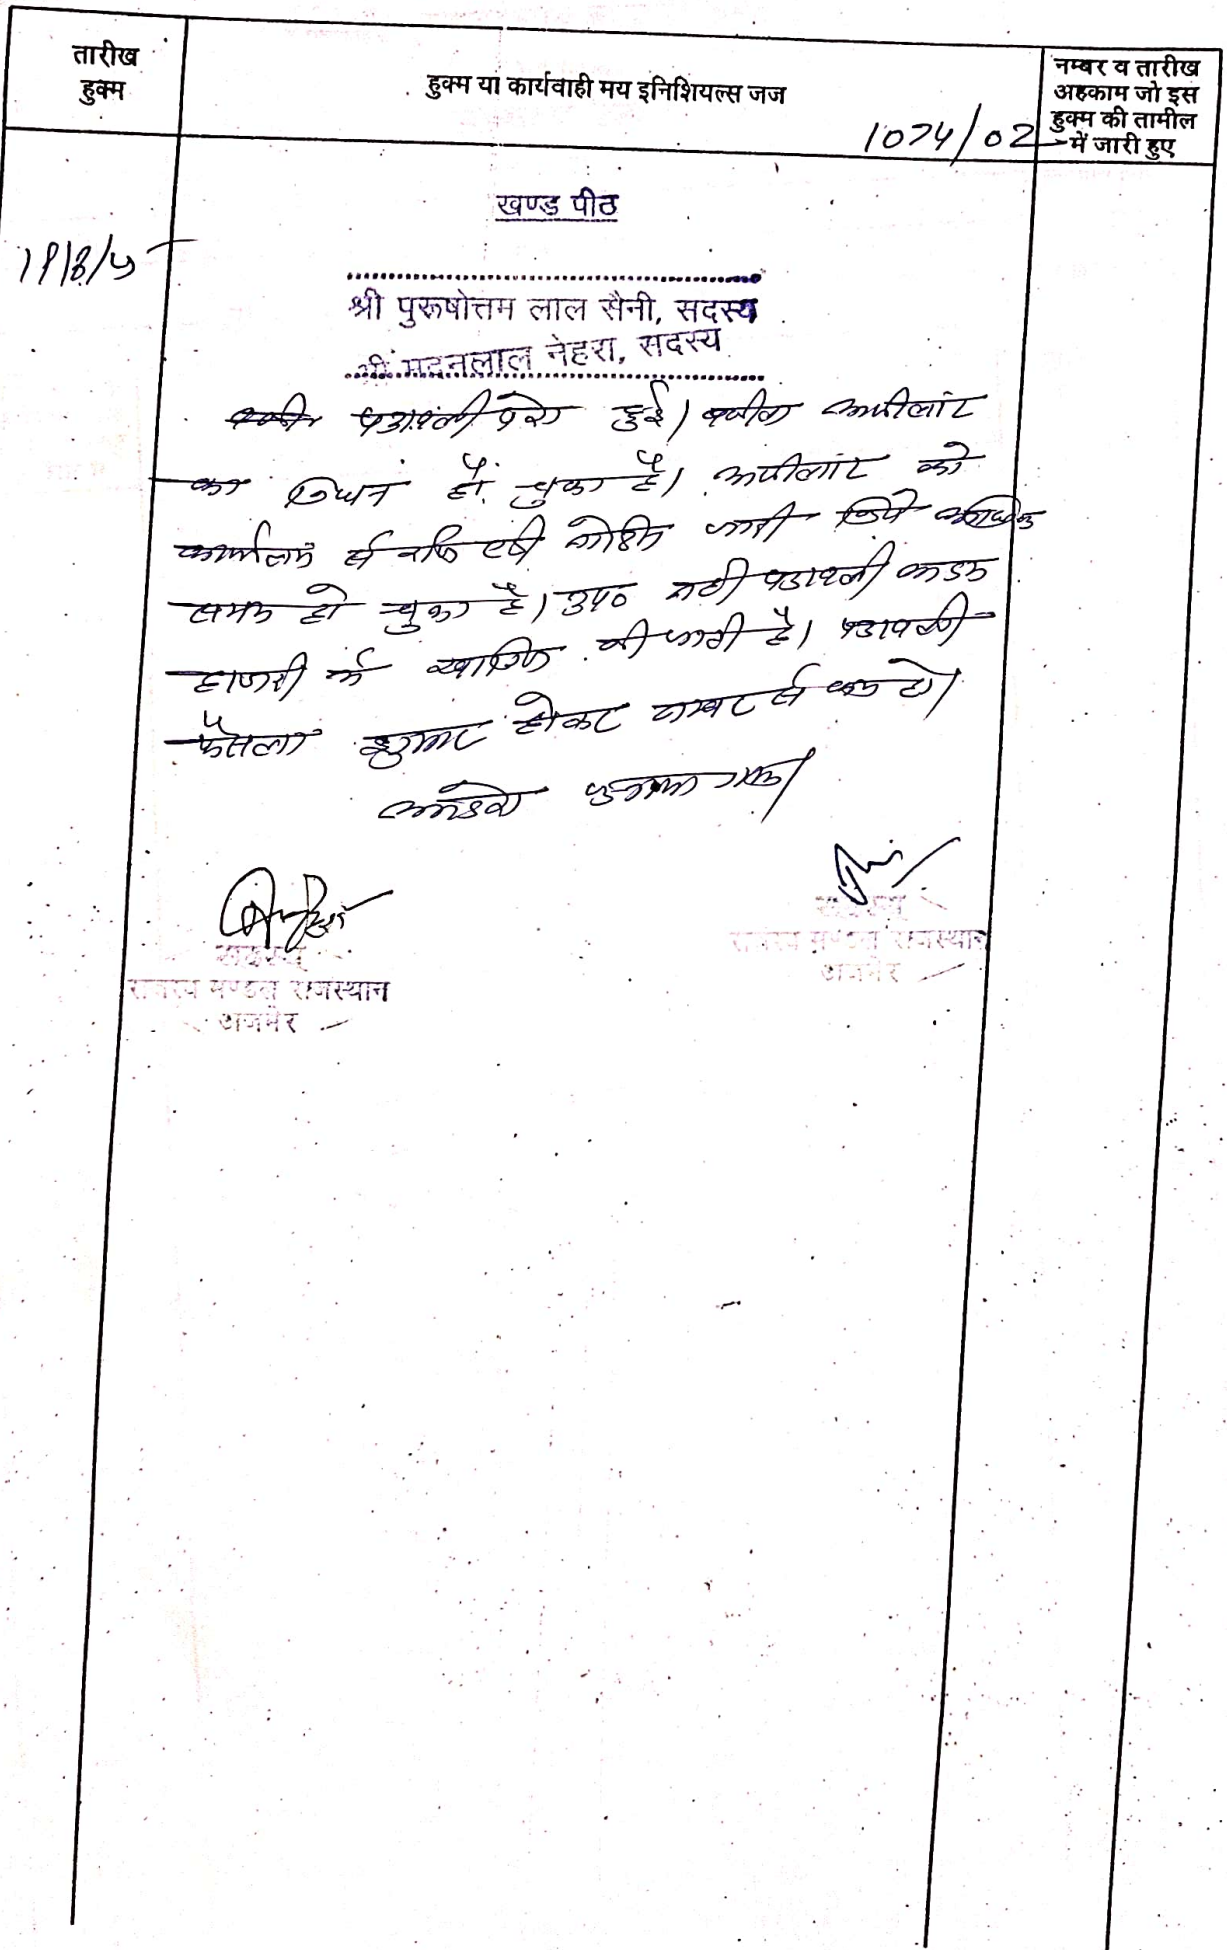 तारीख
हुक्म
हुक्म या कार्यवाही मय इनिशियल्स जज
नम्बर व तारीख
अहकाम जो इस
हुक्म की तामील
में जारी हुए
1074/02
खण्ड पीठ
श्री पुरूषोत्तम लाल सैनी, सदस्य
श्री मदनलाल नेहरा, सदस्य
पत्रावली पेश हुई। वकील अपीलांट
का निधन हो चुका है। अपीलांट को
कार्यालय से रजि एडी नोटिस जारी किये अधिक
समय हो चुका है। उप० नहीं पत्रावली अदम
हाजरी में खारिज की जाती है। पत्रावली
फैसला शुमार होकर नम्बर से कम हो।
सुनाया गया।
सदस्य
राजस्व मण्डल राजस्थान
अजमेर
सदस्य
राजस्व मण्डल राजस्थान
अजमेर